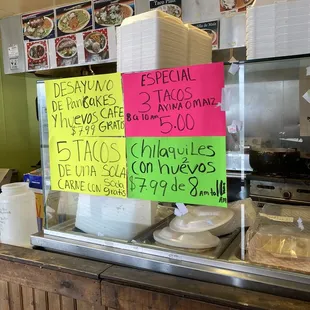 DESAYUNO
DE PanCakes
Y huevos CAFE
$7.99 GRATO
5 TACOS
DE UNA SOLA
CARNE CON SODA
Gratis
ESPECIAL
3 TACOS
HARINA O MAIZ
8 a 10 AM
5.00
Chilaquiles
con huevos
$7.99 de 8 am to 11
am